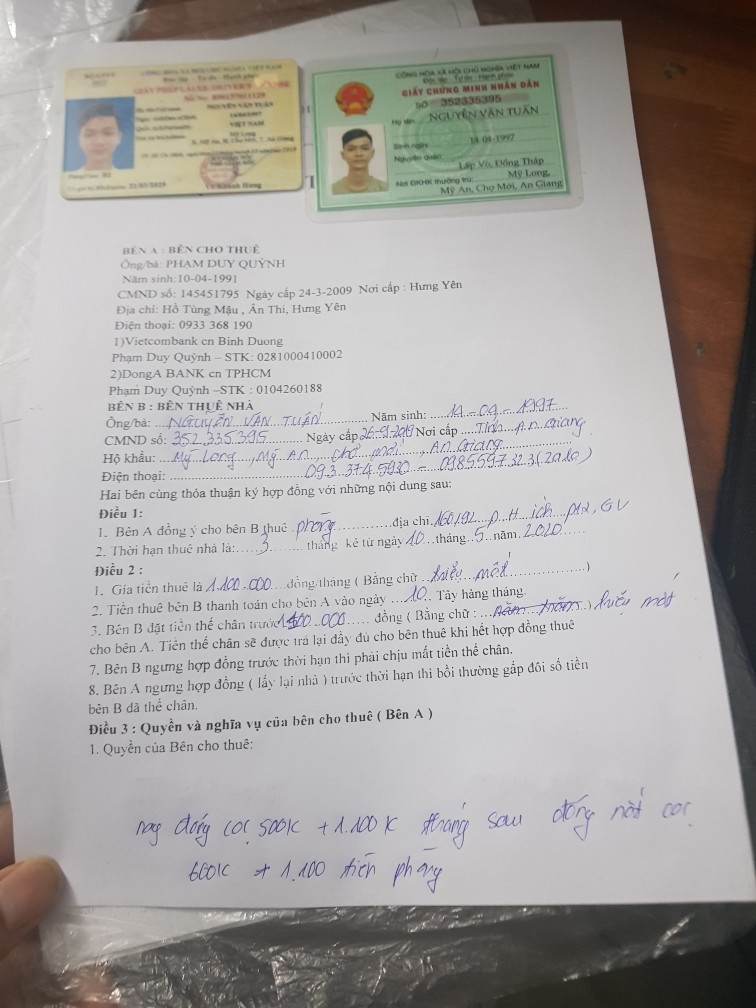 CỘNG HÒA XÃ HỘI CHỦ NGHĨA VIỆT NAM
GIẤY PHÉP LÁI XE/DRIVER'S
NGUYỄN VĂN TUẤN
VIỆT NAM
CỘNG HÒA XÃ HỘI CHỦ NGHĨA VIỆT NAM
Độc lập - Tự do - Hạnh phúc
GIẤY CHỨNG MINH NHÂN DÂN
SỐ 352335395
Họ tên: NGUYỄN VĂN TUẤN
Sinh ngày: 14-04-1997
Nguyên quán: Lấp Vò, Đồng Tháp
Nơi ĐKHK thường trú: Mỹ Long,
Mỹ An, Chợ Mới, An Giang
BÊN A : BÊN CHO THUÊ
Ông/bà: PHẠM DUY QUỲNH
Năm sinh:10-04-1991
CMND số: 145451795 Ngày cấp 24-3-2009 Nơi cấp : Hưng Yên
Địa chỉ: Hồ Tùng Mậu , Ân Thi, Hưng Yên
Điện thoại: 0933 368 190
1)Vietcombank cn Binh Duong
Phạm Duy Quỳnh – STK: 0281000410002
2)DongA BANK cn TPHCM
Phạm Duy Quỳnh –STK : 0104260188
BÊN B : BÊN THUÊ NHÀ
Ông/bà: NGUYỄN VĂN TUẤN Năm sinh: 14-04-1997
CMND số: 352335395 Ngày cấp 26-9-2019 Nơi cấp Tỉnh An Giang
Hộ khẩu: Mỹ Long, Mỹ An, Chợ mới, An Giang
Điện thoại: 093.374.5930 - 0985597323 (zalo)
Hai bên cùng thỏa thuận ký hợp đồng với những nội dung sau:
Điều 1:
1. Bên A đồng ý cho bên B thuê phòng địa chỉ 160/92 p12, GV
2. Thời hạn thuê nhà là: 3 tháng kể từ ngày 10 tháng 5 năm 2020
Điều 2 :
1. Gía tiền thuê là 1.100.000 đồng/tháng ( Bằng chữ triệu một )
2. Tiền thuê bên B thanh toán cho bên A vào ngày 10 Tây hàng tháng.
3. Bên B đặt tiền thế chân trước 1100.000 đồng ( Bằng chữ : năm trăm ) triệu một
cho bên A. Tiền thế chân sẽ được trả lại đầy đủ cho bên thuê khi hết hợp đồng thuê
7. Bên B ngưng hợp đồng trước thời hạn thì phải chịu mất tiền thế chân.
8. Bên A ngưng hợp đồng ( lấy lại nhà ) trước thời hạn thì bồi thường gấp đôi số tiền
bên B đã thế chân.
Điều 3 : Quyền và nghĩa vụ của bên cho thuê ( Bên A )
1. Quyền của Bên cho thuê:
nay đóng cọc 500K + 1.100K tháng sau đóng nốt cọc
600K + 1.100 tiền phòng